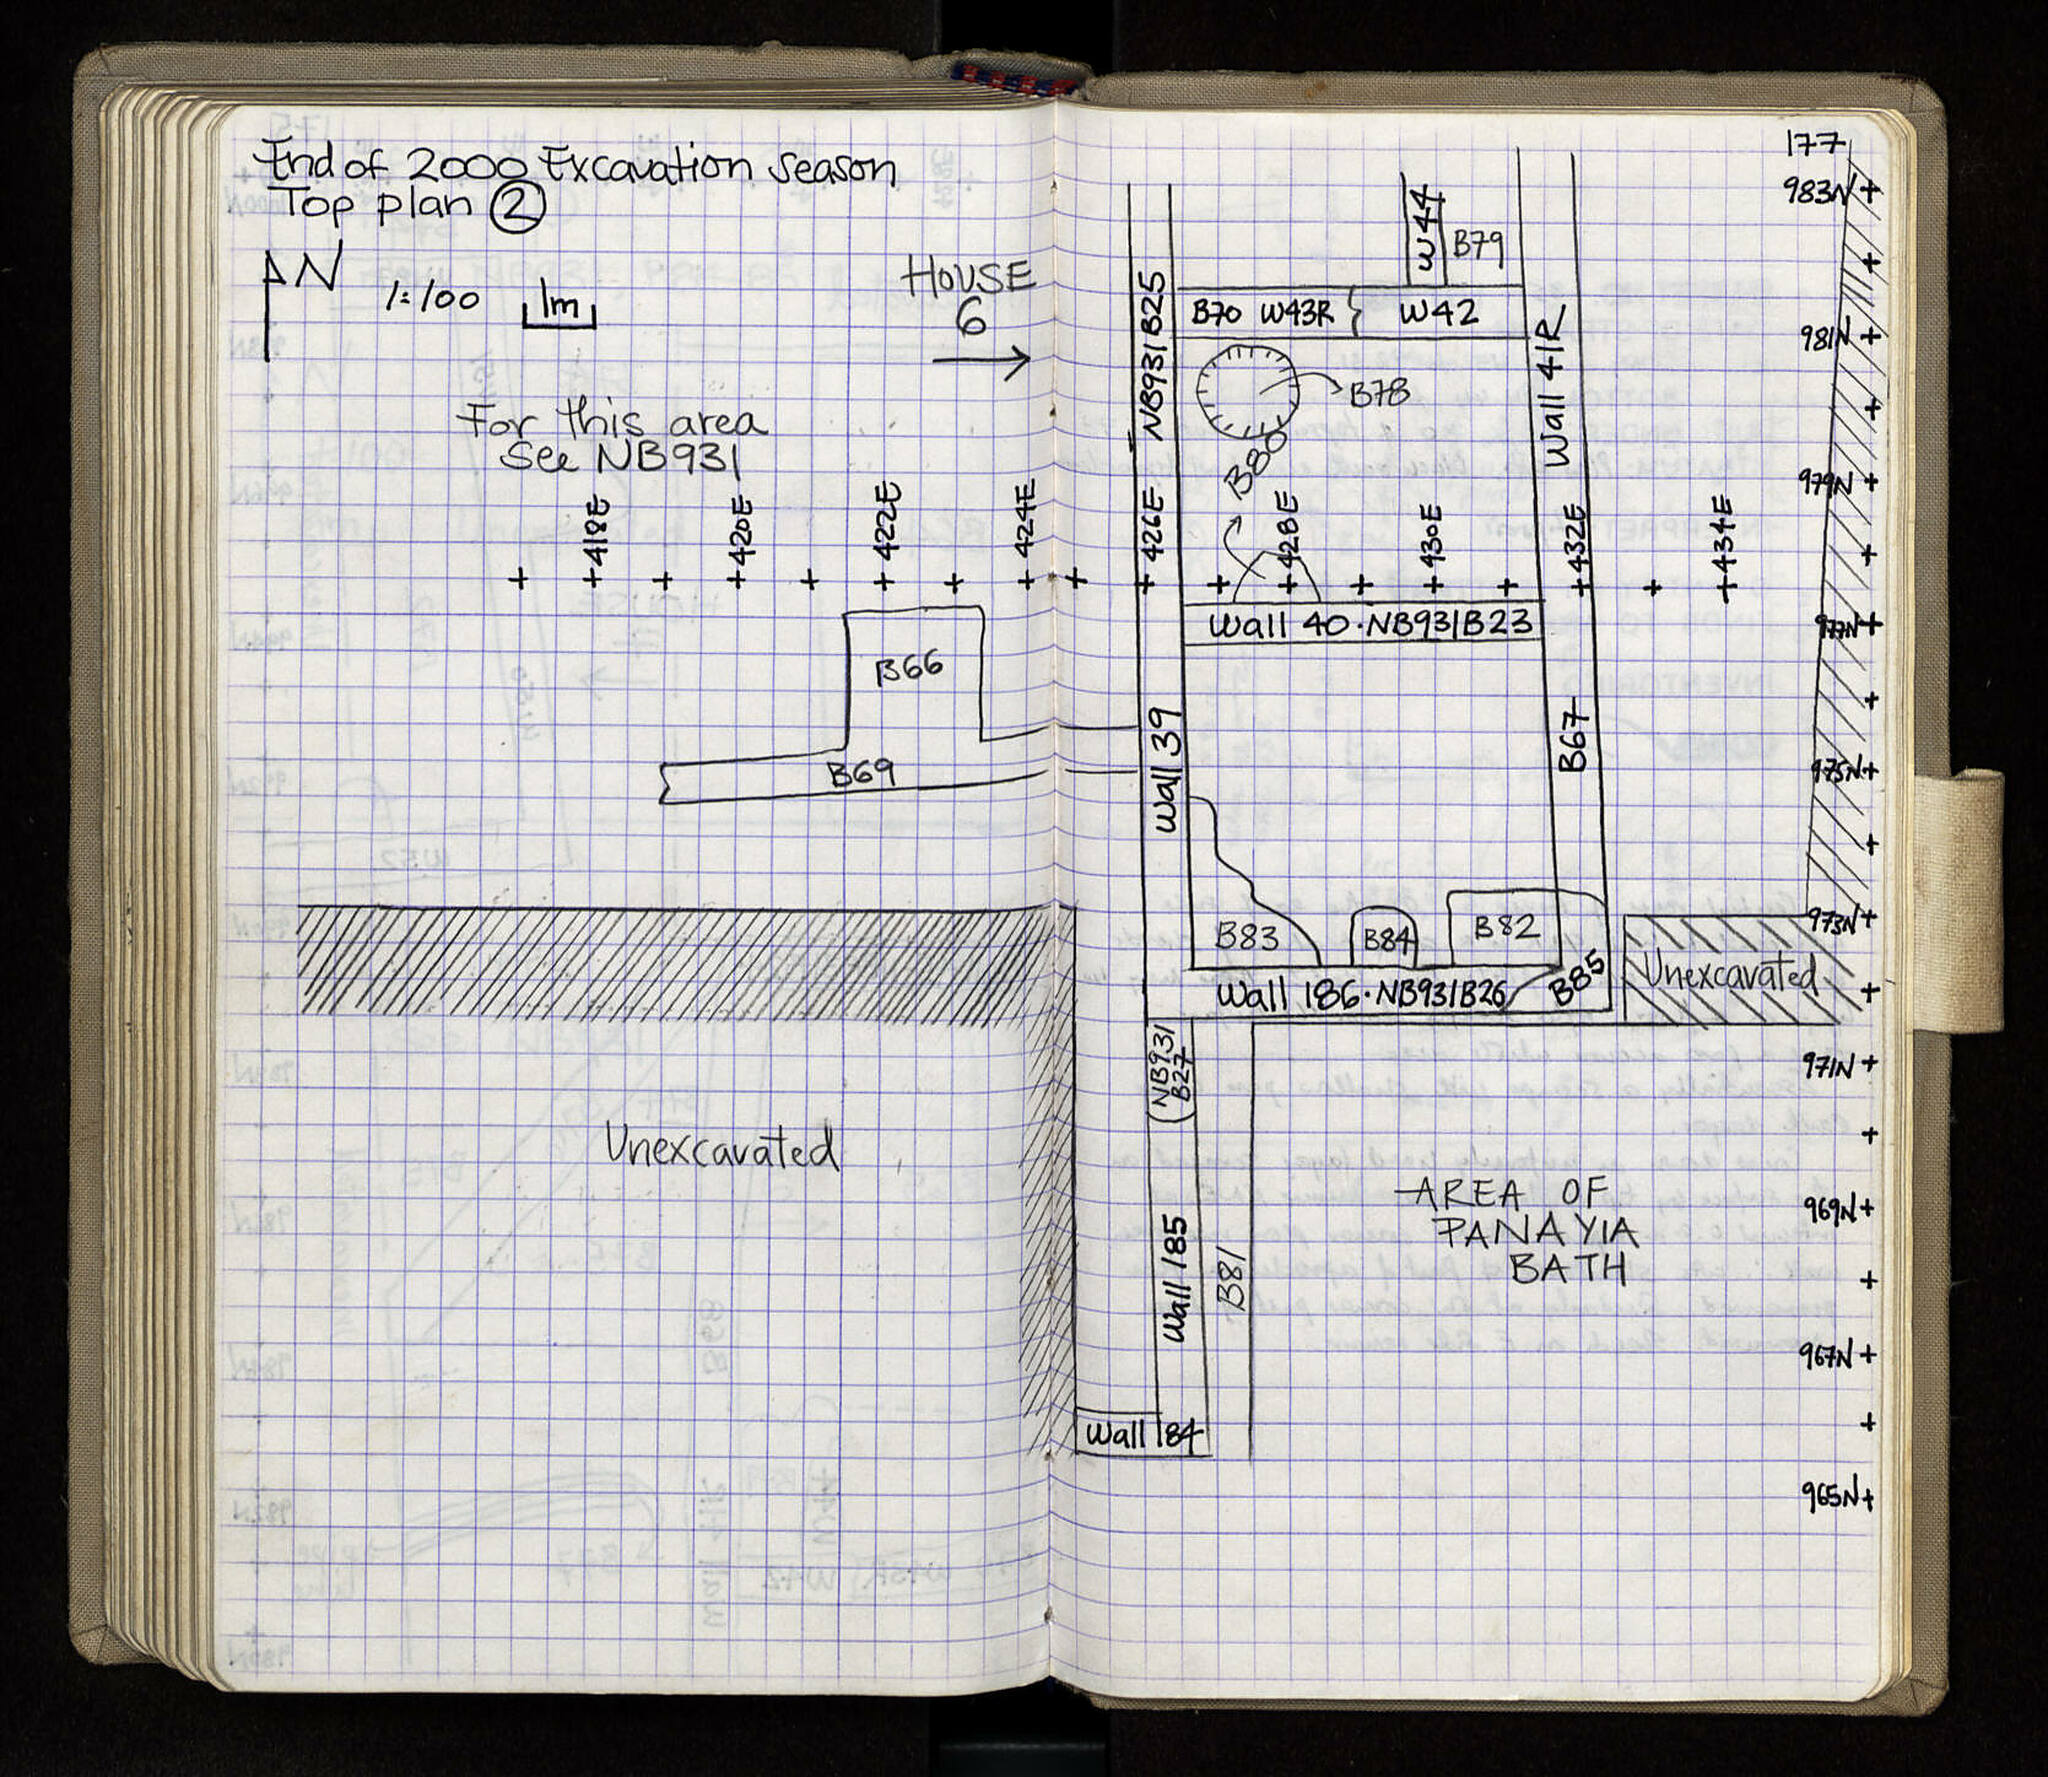 End of 2000 Excavation season
Top plan ②
N
1:100
1m
HOUSE
6
For this area
See NB931
+418E
+420E
+422E
+424E
B66
B69
Unexcavated
177
983N +
981N +
979N +
977N +
975N +
973N +
971N +
969N +
967N +
965N +
W44
B79
B70 W43R
W42
NB931B25
Wall 41R
B78
B80
+426E
+428E
+430E
+432E
+434E
Wall 40·NB931B23
Wall 39
B67
B83
B84
B82
B85
Wall 186·NB931B26
Unexcavated
(NB931
B27
Wall 185
B81
Wall 184
AREA OF
PANAYIA
BATH